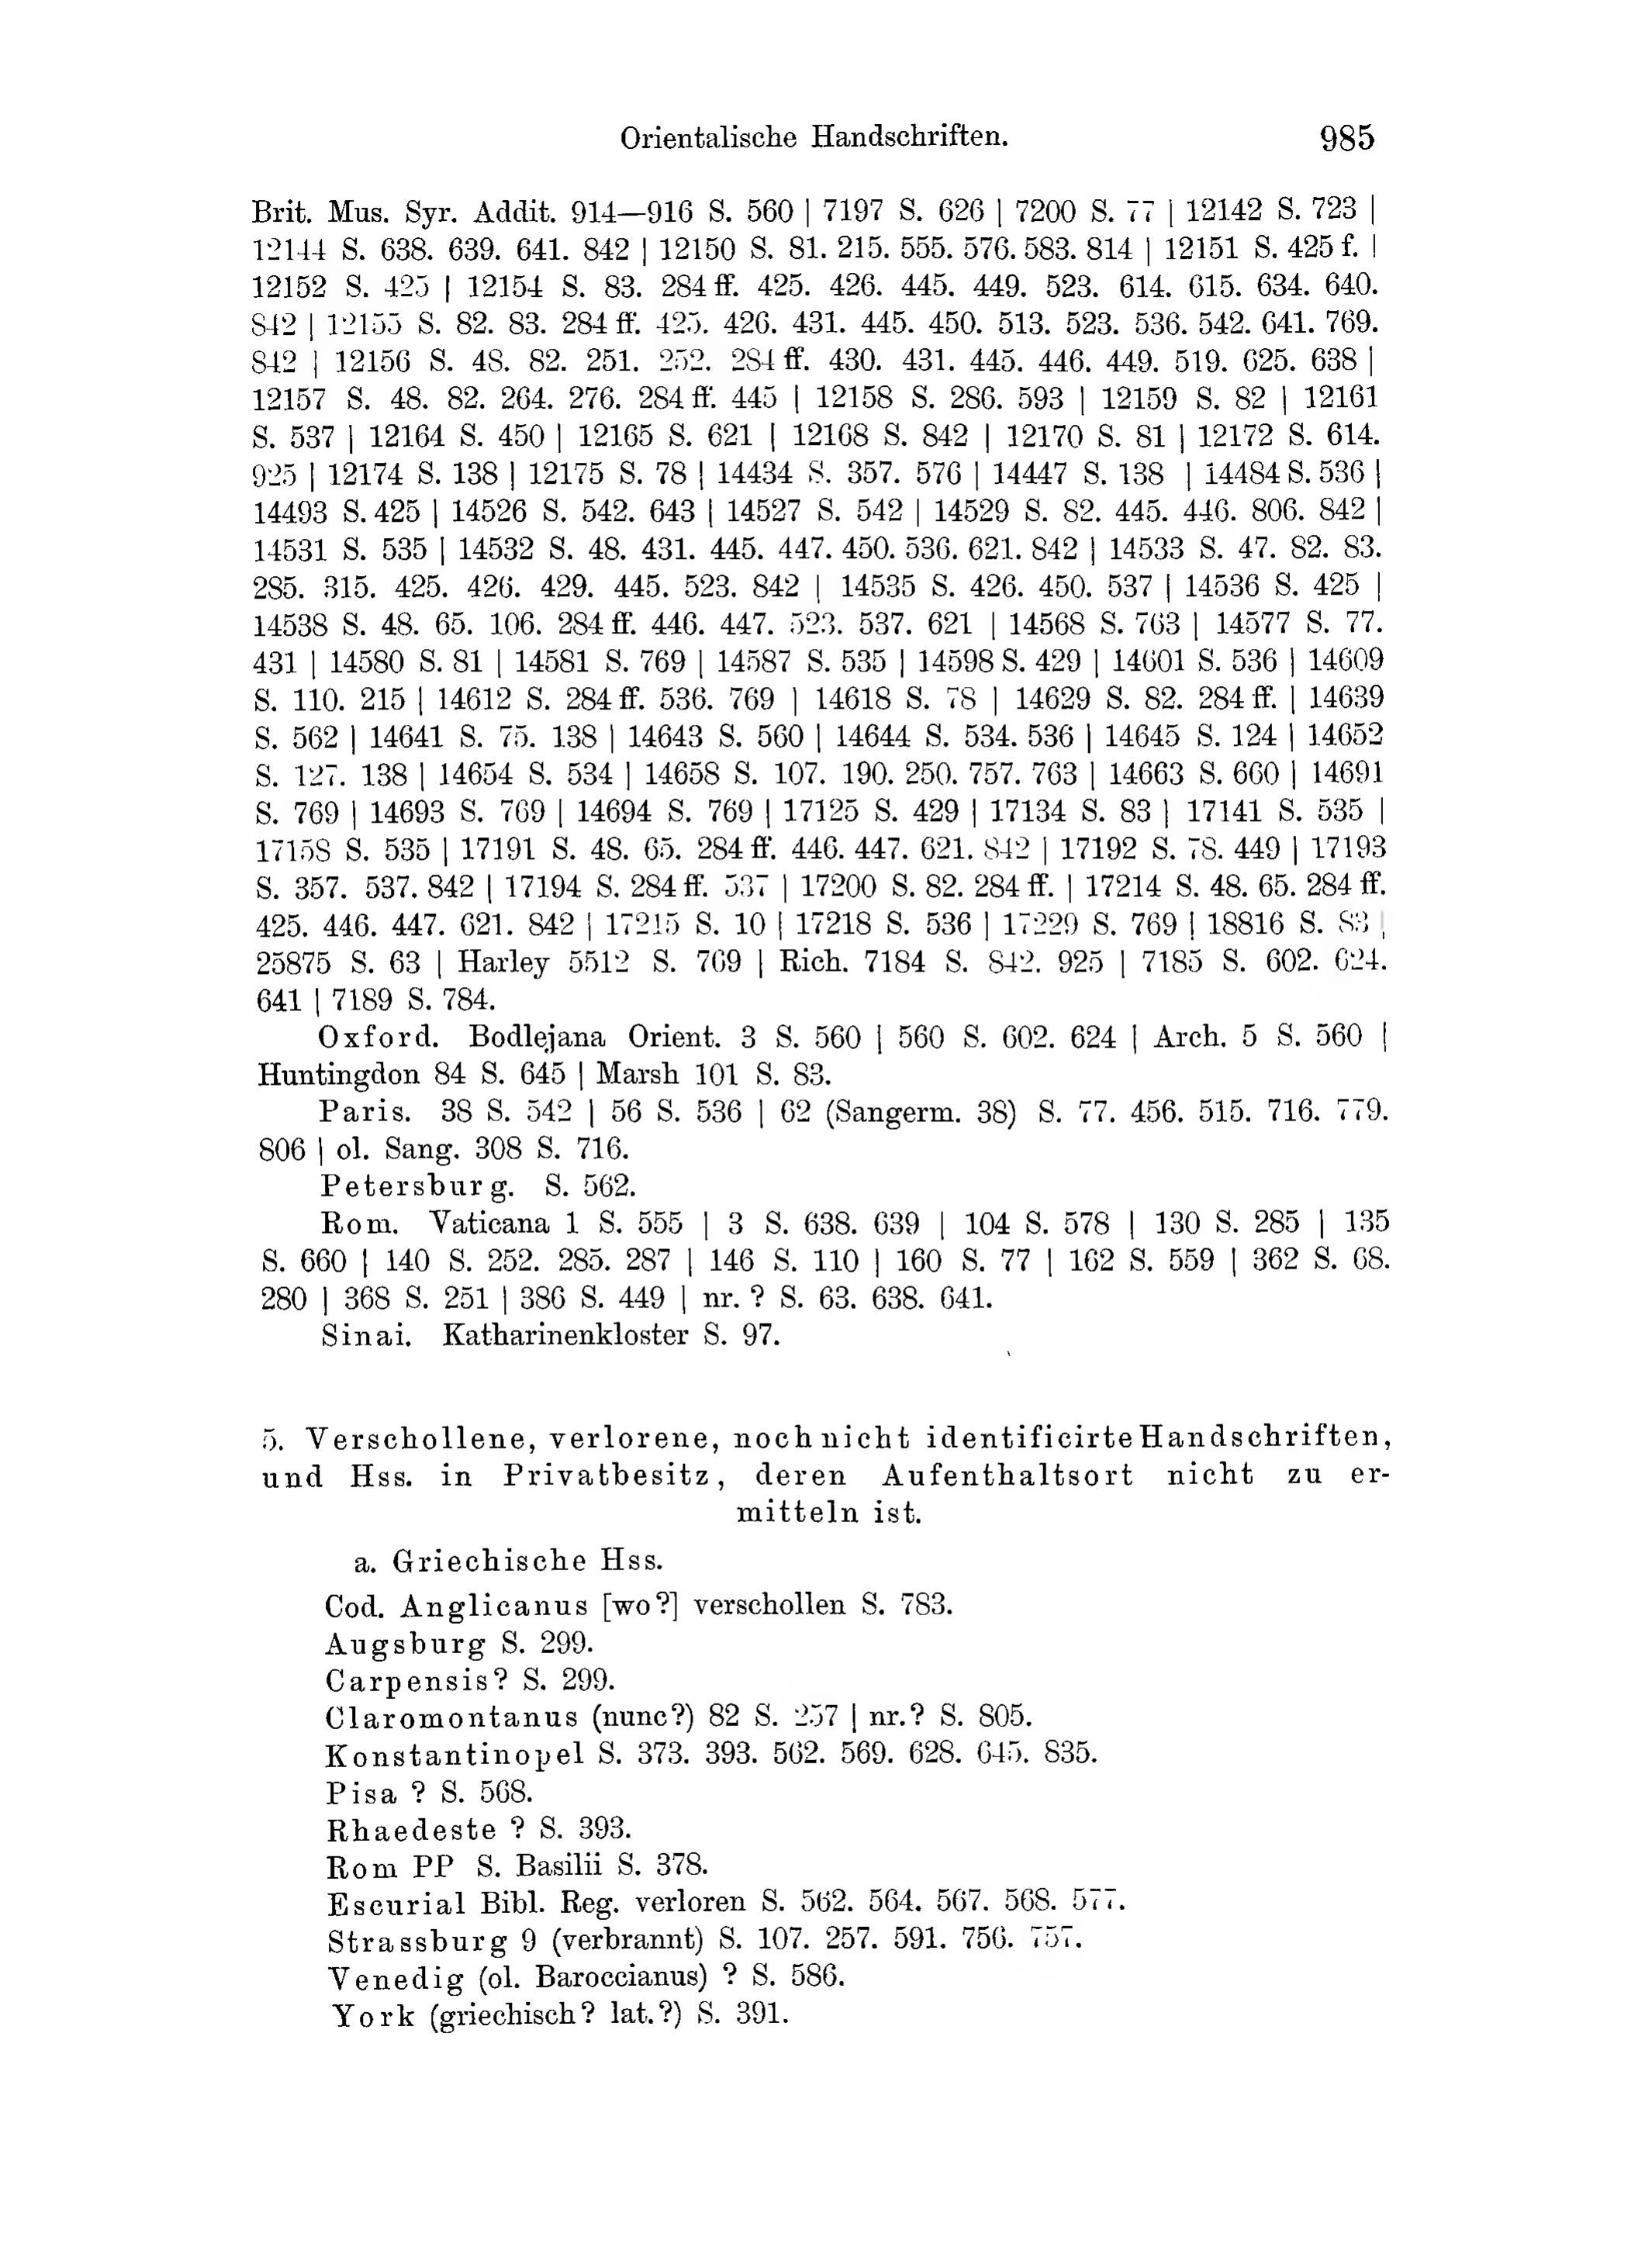 Orientalische Handschriften. 985
Brit. Mus. Syr. Addit. 914—916 S. 560 | 7197 S. 626 | 7200 S. 77 | 12142 S. 723 |
12144 S. 638. 639. 641. 842 | 12150 S. 81. 215. 555. 576. 583. 814 | 12151 S. 425 f. |
12152 S. 425 | 12154 S. 83. 284 ff. 425. 426. 445. 449. 523. 614. 615. 634. 640.
842 | 12155 S. 82. 83. 284 ff. 425. 426. 431. 445. 450. 513. 523. 536. 542. 641. 769.
842 | 12156 S. 48. 82. 251. 252. 284 ff. 430. 431. 445. 446. 449. 519. 625. 638 |
12157 S. 48. 82. 264. 276. 284 ff. 445 | 12158 S. 286. 593 | 12159 S. 82 | 12161
S. 537 | 12164 S. 450 | 12165 S. 621 | 12168 S. 842 | 12170 S. 81 | 12172 S. 614.
925 | 12174 S. 138 | 12175 S. 78 | 14434 S. 357. 576 | 14447 S. 138 | 14484 S. 536 |
14493 S. 425 | 14526 S. 542. 643 | 14527 S. 542 | 14529 S. 82. 445. 446. 806. 842 |
14531 S. 535 | 14532 S. 48. 431. 445. 447. 450. 536. 621. 842 | 14533 S. 47. 82. 83.
285. 315. 425. 426. 429. 445. 523. 842 | 14535 S. 426. 450. 537 | 14536 S. 425 |
14538 S. 48. 65. 106. 284 ff. 446. 447. 523. 537. 621 | 14568 S. 763 | 14577 S. 77.
431 | 14580 S. 81 | 14581 S. 769 | 14587 S. 535 | 14598 S. 429 | 14601 S. 536 | 14609
S. 110. 215 | 14612 S. 284 ff. 536. 769 | 14618 S. 78 | 14629 S. 82. 284 ff. | 14639
S. 562 | 14641 S. 75. 138 | 14643 S. 560 | 14644 S. 534. 536 | 14645 S. 124 | 14652
S. 127. 138 | 14654 S. 534 | 14658 S. 107. 190. 250. 757. 763 | 14663 S. 660 | 14691
S. 769 | 14693 S. 769 | 14694 S. 769 | 17125 S. 429 | 17134 S. 83 | 17141 S. 535 |
17158 S. 535 | 17191 S. 48. 65. 284 ff. 446. 447. 621. 842 | 17192 S. 78. 449 | 17193
S. 357. 537. 842 | 17194 S. 284 ff. 537 | 17200 S. 82. 284 ff. | 17214 S. 48. 65. 284 ff.
425. 446. 447. 621. 842 | 17215 S. 10 | 17218 S. 536 | 17229 S. 769 | 18816 S. 83 |
25875 S. 63 | Harley 5512 S. 769 | Rich. 7184 S. 842. 925 | 7185 S. 602. 624.
641 | 7189 S. 784.
Oxford. Bodlejana Orient. 3 S. 560 | 560 S. 602. 624 | Arch. 5 S. 560 |
Huntingdon 84 S. 645 | Marsh 101 S. 83.
Paris. 38 S. 542 | 56 S. 536 | 62 (Sangerm. 38) S. 77. 456. 515. 716. 779.
806 | ol. Sang. 308 S. 716.
Petersburg. S. 562.
Rom. Vaticana 1 S. 555 | 3 S. 638. 639 | 104 S. 578 | 130 S. 285 | 135
S. 660 | 140 S. 252. 285. 287 | 146 S. 110 | 160 S. 77 | 162 S. 559 | 362 S. 68.
280 | 368 S. 251 | 386 S. 449 | nr. ? S. 63. 638. 641.
Sinai. Katharinenkloster S. 97.
5. Verschollene, verlorene, noch nicht identificirte Handschriften,
und Hss. in Privatbesitz, deren Aufenthaltsort nicht zu er-
mitteln ist.
a. Griechische Hss.
Cod. Anglicanus [wo?] verschollen S. 783.
Augsburg S. 299.
Carpensis? S. 299.
Claromontanus (nunc?) 82 S. 257 | nr.? S. 805.
Konstantinopel S. 373. 393. 562. 569. 628. 645. 835.
Pisa ? S. 568.
Rhaedeste ? S. 393.
Rom PP S. Basilii S. 378.
Escurial Bibl. Reg. verloren S. 562. 564. 567. 568. 577.
Strassburg 9 (verbrannt) S. 107. 257. 591. 756. 757.
Venedig (ol. Baroccianus) ? S. 586.
York (griechisch? lat.?) S. 391.